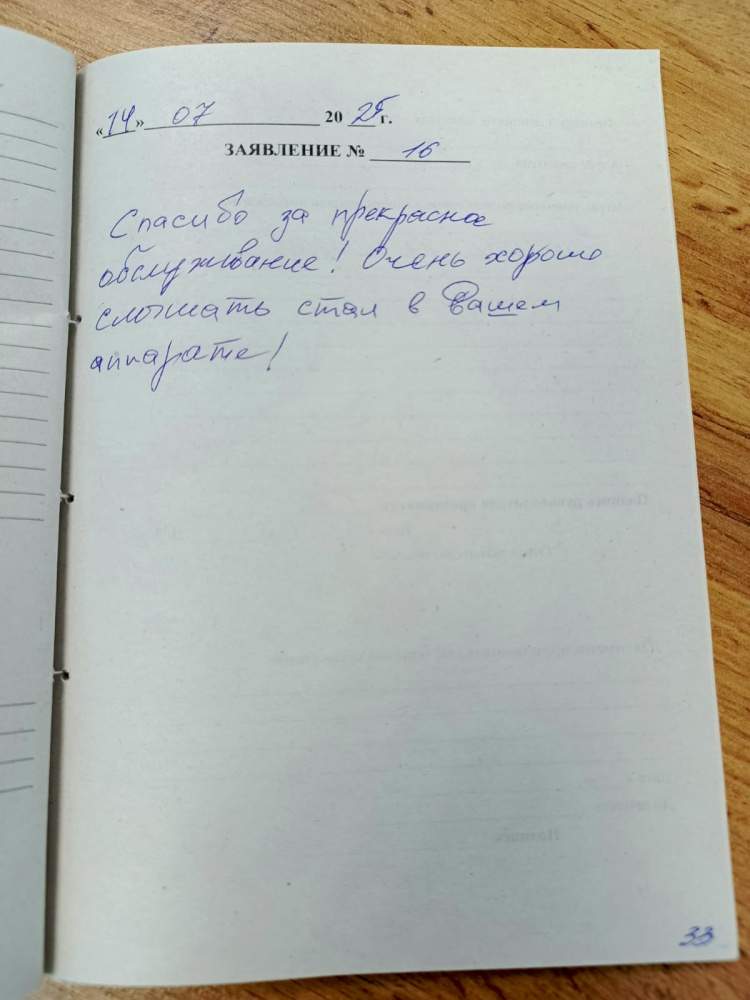 «14» 07 2025 г.
ЗАЯВЛЕНИЕ № 16
Спасибо за прекрасное
обслуживание! Очень хорошо
слышать стал в Вашем
аппарате!
33